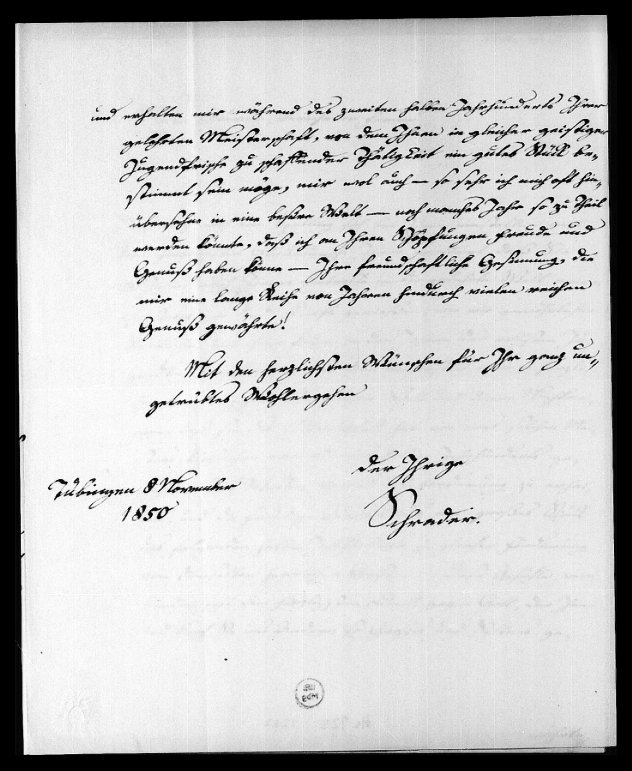 und erhalten mir während des zweiten halben Jahrhunderts Ihrer
gelehrten Meisterschaft, von dem Ihnen in gleicher geistiger
Jugendfrische zu schaffender Thätigkeit ein gutes Stück be-
stimmt sein möge, mir wol auch — so sehr ich mich oft hin-
übersehne in eine bessre Welt — noch manches Jahr so zu Theil
werden könnte, daß ich an Ihren Schöpfungen Freude und
Genuß haben könne — Ihre freundschaftliche Gesinnung, die
mir eine lange Reihe von Jahren hindurch vielen reichen
Genuß gewährte!
Mit den herzlichsten Wünschen für Ihr ganz un-
getrübtes Wohlergehen
der Ihrige
Schrader.
Tübingen 8 November
1850